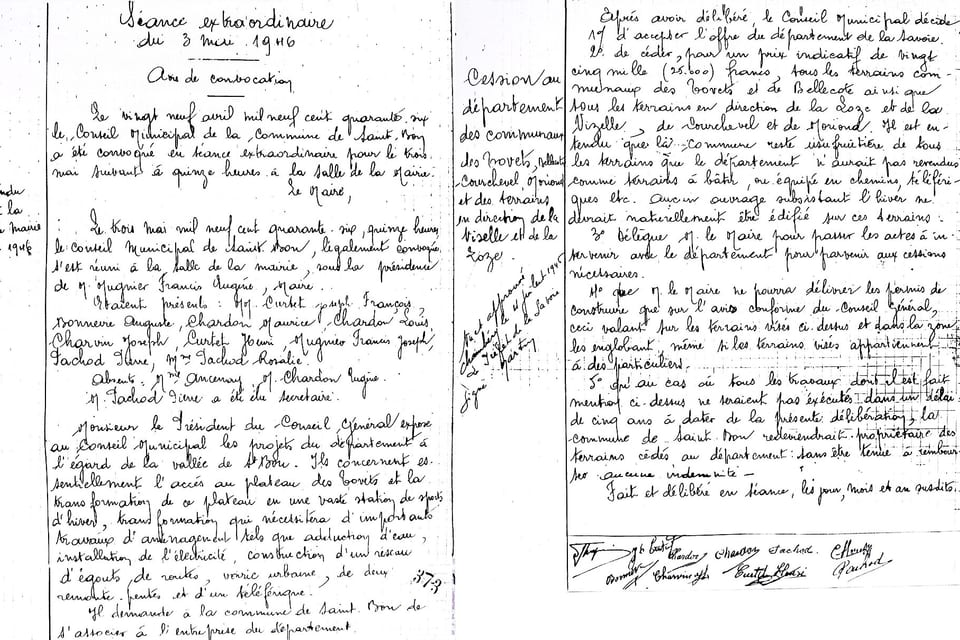 Séance extraordinaire
du 3 mai 1946
Avis de convocation
Le vingt neuf avril mil neuf cent quarante six
le Conseil Municipal de la Commune de Saint Bon
a été convoqué en séance extraordinaire pour le trois
mai suivant à quinze heures à la salle de la Mairie.
Le Maire,
Le trois mai mil neuf cent quarante six, quinze heures
le conseil Municipal de Saint Bon, légalement convoqué
s'est réuni à la salle de la mairie, sous la présidence
de M Mugnier Francis Eugène, Maire.
Etaient présents : MM Curtet Joseph François,
Bonnevie Auguste, Chardon Maurice, Chardon Louis,
Charvin Joseph, Curtet Henri Mugnier Francis Joseph,
Pachod Pierre, Mme Pachod Rosalie.
Absents : Mme Ancenay, M. Chardon Eugène.
M. Pachod Pierre a été élu secrétaire.
Monsieur le Président du Conseil Général expose
au Conseil Municipal les projets du département à
l'égard de la vallée de St Bon. Ils concernent es-
sentiellement l'accès au plateau des Tovets et la
transformation de ce plateau en une vaste station de sports
d'hiver, transformation qui nécessitera d'importants
travaux d'aménagement tels que adduction d'eau,
installation de l'électricité, construction d'un réseau
d'égouts, de routes, voirie urbaine, de deux
remonte-pentes et d'un téléférique.
Il demande à la commune de Saint Bon de
s'associer à l'entreprise du département.
373
la
mairie
1946
Cession au
département
des communaux
des Tovets, Bellecote
Courchevel Moriond
et des terrains
en direction de la
Vizelle et de la
Loze
Vu et approuvé
le Juillet 1946
Le Préfet de la Savoie
signé :
Après avoir délibéré, le Conseil Municipal décide
1° d'accepter l'offre du département de la Savoie.
2° de céder, pour un prix indicatif de vingt
cinq mille (25.000) francs, tous les terrains com-
munaux des Tovets et de Bellecote ainsi que
tous les terrains en direction de la Loze et de la
Vizelle, de Courchevel et de Moriond. Il est en-
tendu que la commune reste usufruitière de tous
les terrains que le département n'aurait pas revendus
comme terrains à bâtir, ou équipé en chemins, téléféri-
ques etc. Aucun ouvrage subsistant l'hiver ne
devrait naturellement être édifié sur ces terrains :
3° Délègue M. le Maire pour passer les actes à in-
tervenir avec le département pour parvenir aux cessions
nécessaires.
4° que M le Maire ne pourra délivrer les permis de
construire que sur l'avis conforme du Conseil Général,
ceci valant sur les terrains visés ci-dessus et dans la zone
les englobant, même si les terrains visés appartiennent
à des particuliers.
5° qu'au cas où tous les travaux dont il est fait
mention ci-dessus ne seraient pas exécutés dans un délai
de cinq ans à dater de la présente délibération, la
commune de Saint Bon redeviendrait propriétaire des
terrains cédés au département : sans être tenue à rembour-
ser aucune indemnité –
Fait et délibéré en séance, les jour, mois et an susdits.
Chardon Chardon Pachod.
Bonnevie Charvin Jph Curtet Henri Pachod